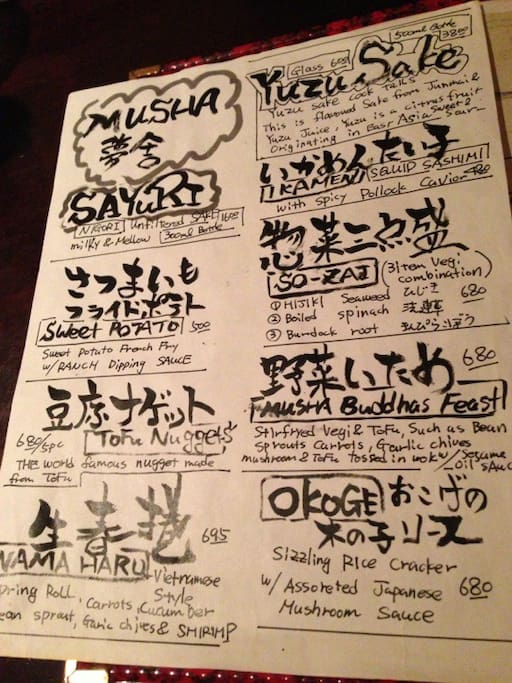 MUSHA
夢舎
SAYURI
NIGORI Unfiltered SAKE 1600
milky & Mellow 300ml Bottle
さつまいも
フライドポテト
Sweet POTATO 500
Sweet Potato French Fry
w/ RANCH Dipping SAUCE
豆腐ナゲット
680/5pc Tofu Nuggets
THE world famous nugget made
from TOFU
生春捲 695
NAMA HARU Vietnamese
Style
pring Roll, Carrots, Cucumber
ean sprout, Garlic chives & SHRIMP
Glass 600 500ml Bottle
3800
Yuzu Sake
Yuzu sake cock tails
This is flavoured Sake from Junmai &
Yuzu Juice, Yuzu is a citrus fruit
Originating in East Asia Sweet &
Sour
いかめんたい子
IKAMEN SQUID SASHIMI
with Spicy Pollock Caviar
惣菜三点盛
SO-ZAI (3 Item Vegi
combination)
① HIJIKI Seaweed ひじき
② Boiled spinach 680
③ Burdock root
野菜いため 680
MUSHA Buddhas Feast
Stirfryed Vegi & Tofu, Such as Bean
Sprouts Carrots, Garlic chives
mushroom & Tofu tossed in wok w/ Sesame
oil sAuce
OKOGE おこげの
木の子ソース
Sizzling Rice Cracker
w/ Assoreted Japanese 680
Mushroom Sauce